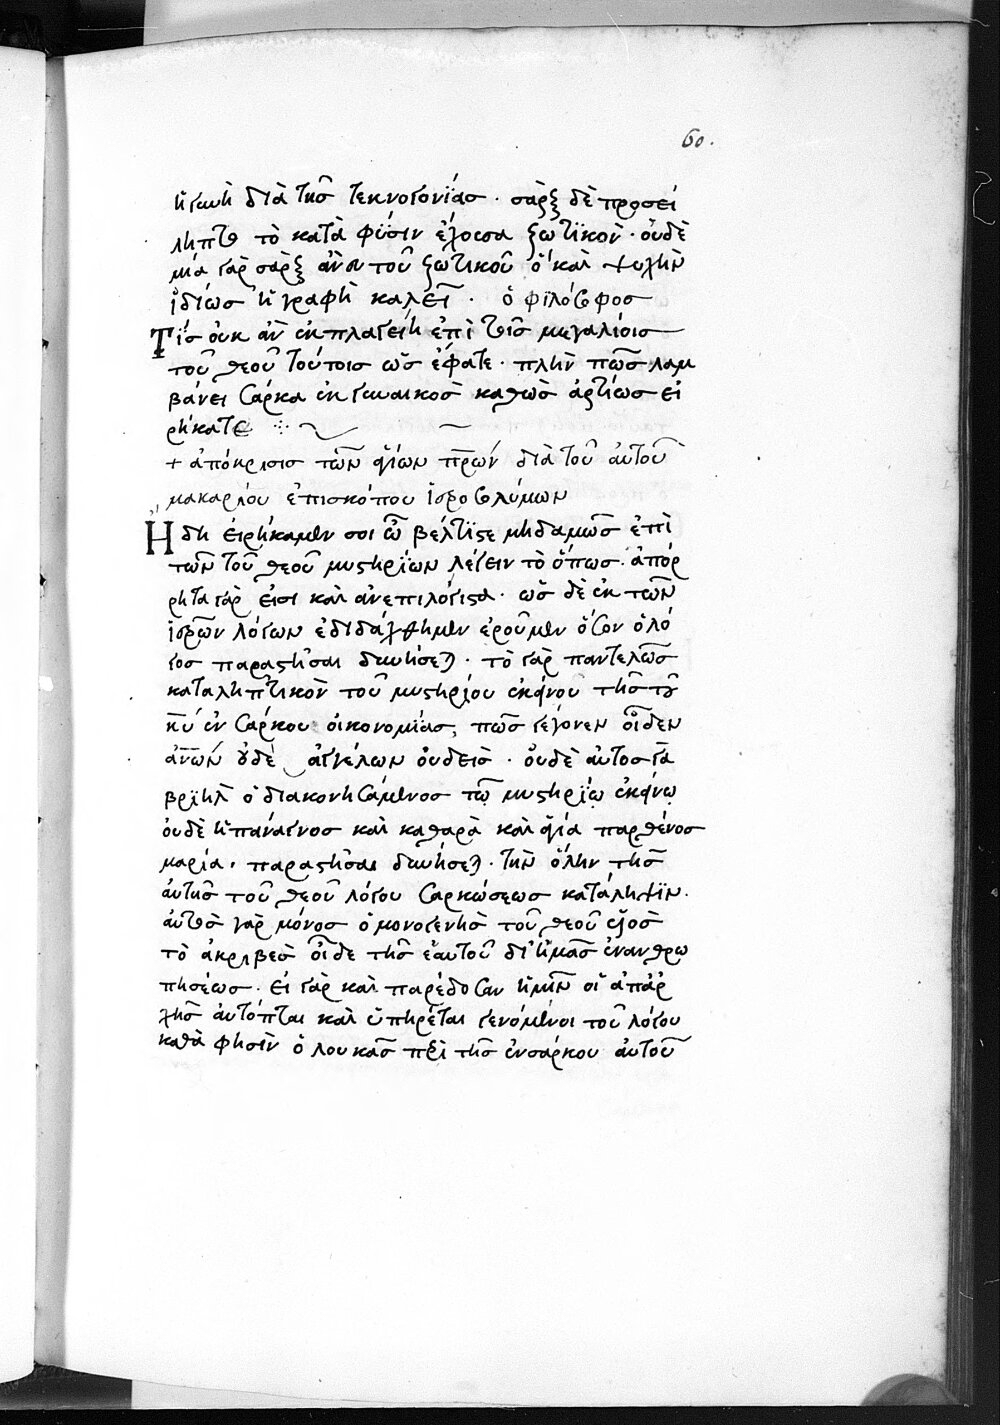 60.
ἡ γυνὴ διὰ τῆς τεκνογονίας · σὰρξ δὲ προσεί
ληπτο τὸ κατὰ φύσιν ἔχουσα ζωτικὸν · οὐδὲ
μία γὰρ σὰρξ ἄνευ τοῦ ζωτικοῦ ὃ καὶ ψυχὴν
ἰδίως ἡ γραφὴ καλεῖ · ὁ φιλόσοφος
Τίς οὐκ ἂν ἐκπλαγείη ἐπὶ τοῖς μεγαλείοις
τοῦ θεοῦ τούτοις ὡς ἔφατε · πλὴν πῶς λαμ
βάνει σάρκα ἐκ γυναικὸς καθὼς ἀρτίως εἰ
ρήκατε
+ ἀπόκρισις τῶν ἁγίων πρων διὰ τοῦ αὐτοῦ
μακαρίου ἐπισκόπου ἱεροσολύμων
Ἤδη εἰρήκαμεν σοι ὦ βέλτιστε μηδαμῶς ἐπὶ
τῶν τοῦ θεοῦ μυστηρίων λέγειν τὸ ὅπως · ἀπόρ
ρητα γάρ εἰσι καὶ ἀνεπιλόγιστα · ὡς δὲ ἐκ τῶν
ἱερῶν λόγων ἐδιδάχθημεν ἐροῦμεν ὅσον ὁ λό
γος παραστῆσαι δυνήσεται · τὸ γὰρ παντελῶς
καταληπτικὸν τοῦ μυστηρίου ἐκείνου τῆς τοῦ
κυ ἐν σάρκου οἰκονομίας, πῶς γέγονεν οἶδεν
ἀνῶν οὐδὲ ἀγγέλων οὐδεὶς · οὐδὲ αὐτὸς γα
βριὴλ ὁ διακονησάμενος τῷ μυστηρίῳ ἐκείνῳ
οὐδὲ ἡ πάναγνος καὶ καθαρὰ καὶ ἁγία παρθένος
μαρία · παραστῆσαι δυνήσεται · τὴν ὅλην τῆς
αὐτῆς τοῦ θεοῦ λόγου σαρκώσεως κατάληψιν ·
αὐτὸς γὰρ μόνος ὁ μονογενὴς τοῦ θεοῦ υἱὸς
τὸ ἀκριβὲς οἶδε τῆς ἑαυτοῦ δι' ἡμᾶς ἐνανθρω
πήσεως · εἰ γὰρ καὶ παρέδοσαν ἡμῖν οἱ ἀπ' ἀρ
χῆς αὐτόπται καὶ ὑπηρέται γενόμενοι τοῦ λόγου
καθά φησιν ὁ λουκᾶς περὶ τῆς ἐνσάρκου αὐτοῦ